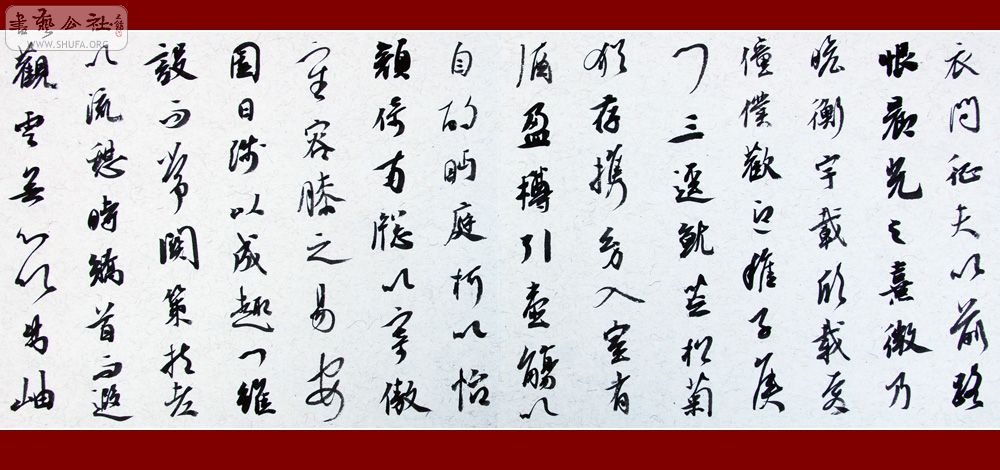 衣問征夫以前路
恨晨光之熹微乃
瞻衡宇載欣載奔
僮僕歡迎稚子候
門三逕就荒松菊
猶存携幼入室有
酒盈樽引壺觴以
自酌眄庭柯以怡
顔倚南牕以寄傲
審容膝之易安
園日涉以成趣門雖
設而常關策扶老
以流憩時矯首而遐
觀雲無心以出岫
書藝公社
WWW.SHUFA.ORG